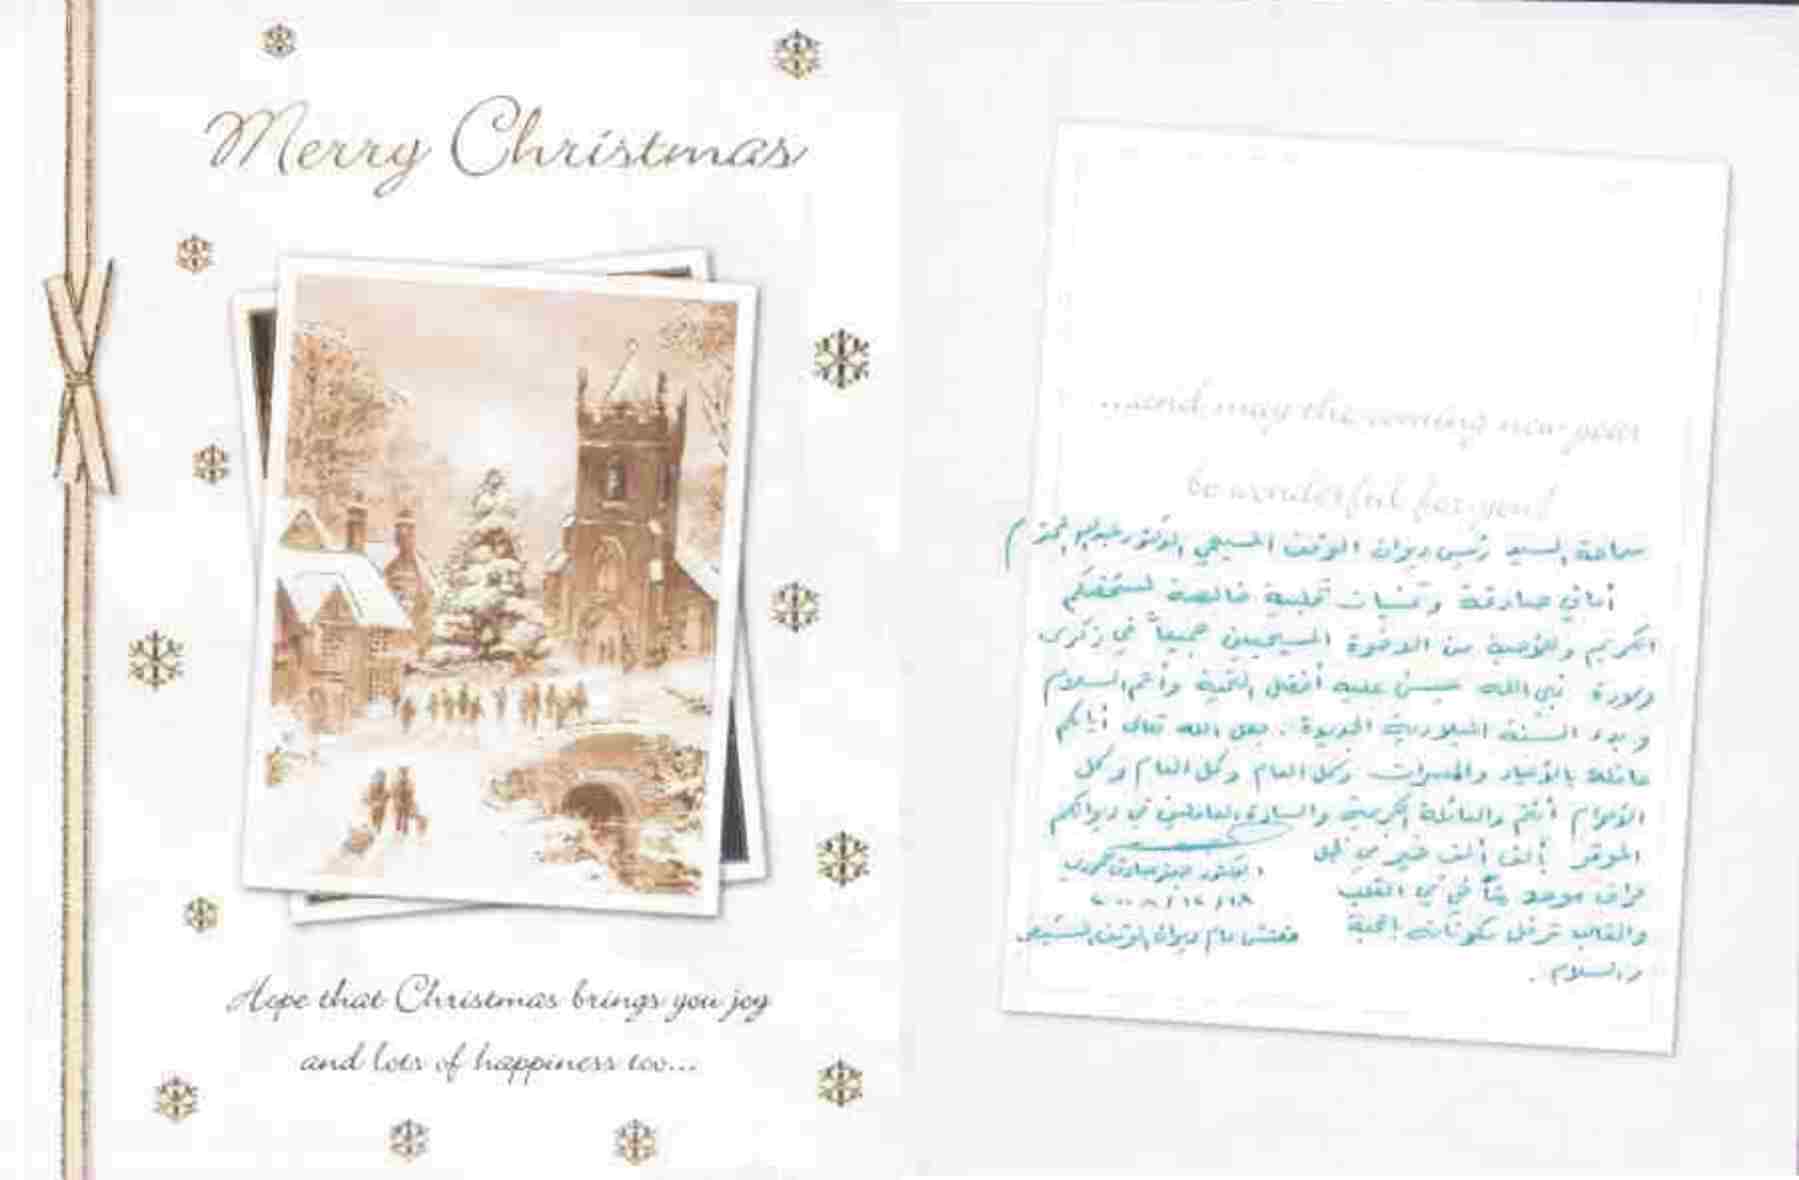 Merry Christmas
Hope that Christmas brings you joy
and lots of happiness too...
...and may the coming new year
be wonderful for you!
سماحة السيد رئيس ديوان الوقف المسيحي الدكتور المحترم
أماني صادقة وتمنيات قلبية خالصة لشخصكم
الكريم وللأحبة من الاخوة المسيحيين جميعاً في ذكرى
ولادة نبي الله عيسى عليه أفضل التحية وأتم السلام
وبدء السنة الميلادية الجديدة . جعل الله تعالى أيامكم
حافلة بالأعياد والمسرات وكل العام وكل العام وكل
الأعوام أنتم والعائلة الكريمة والسادة العاملين في ديوانكم
الموقر بألف ألف خير من
في القلب
والقلب بالمحبة
والسلام .
الدكتور
٢٠٠٨/١٢/١٨
مفتش عام ديوان الوقف الشيعي